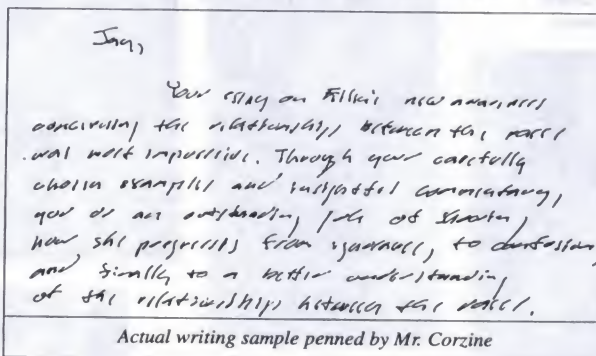 Your essay on new awareness
concerning the relationships between the races
was most impressive. Through your carefully
chosen examples and insightful commentary,
you do an outstanding job of showing
how she progresses from ignorance, to confusion,
and finally to a better understanding
of the relationships between the races.
Actual writing sample penned by Mr. Corzine